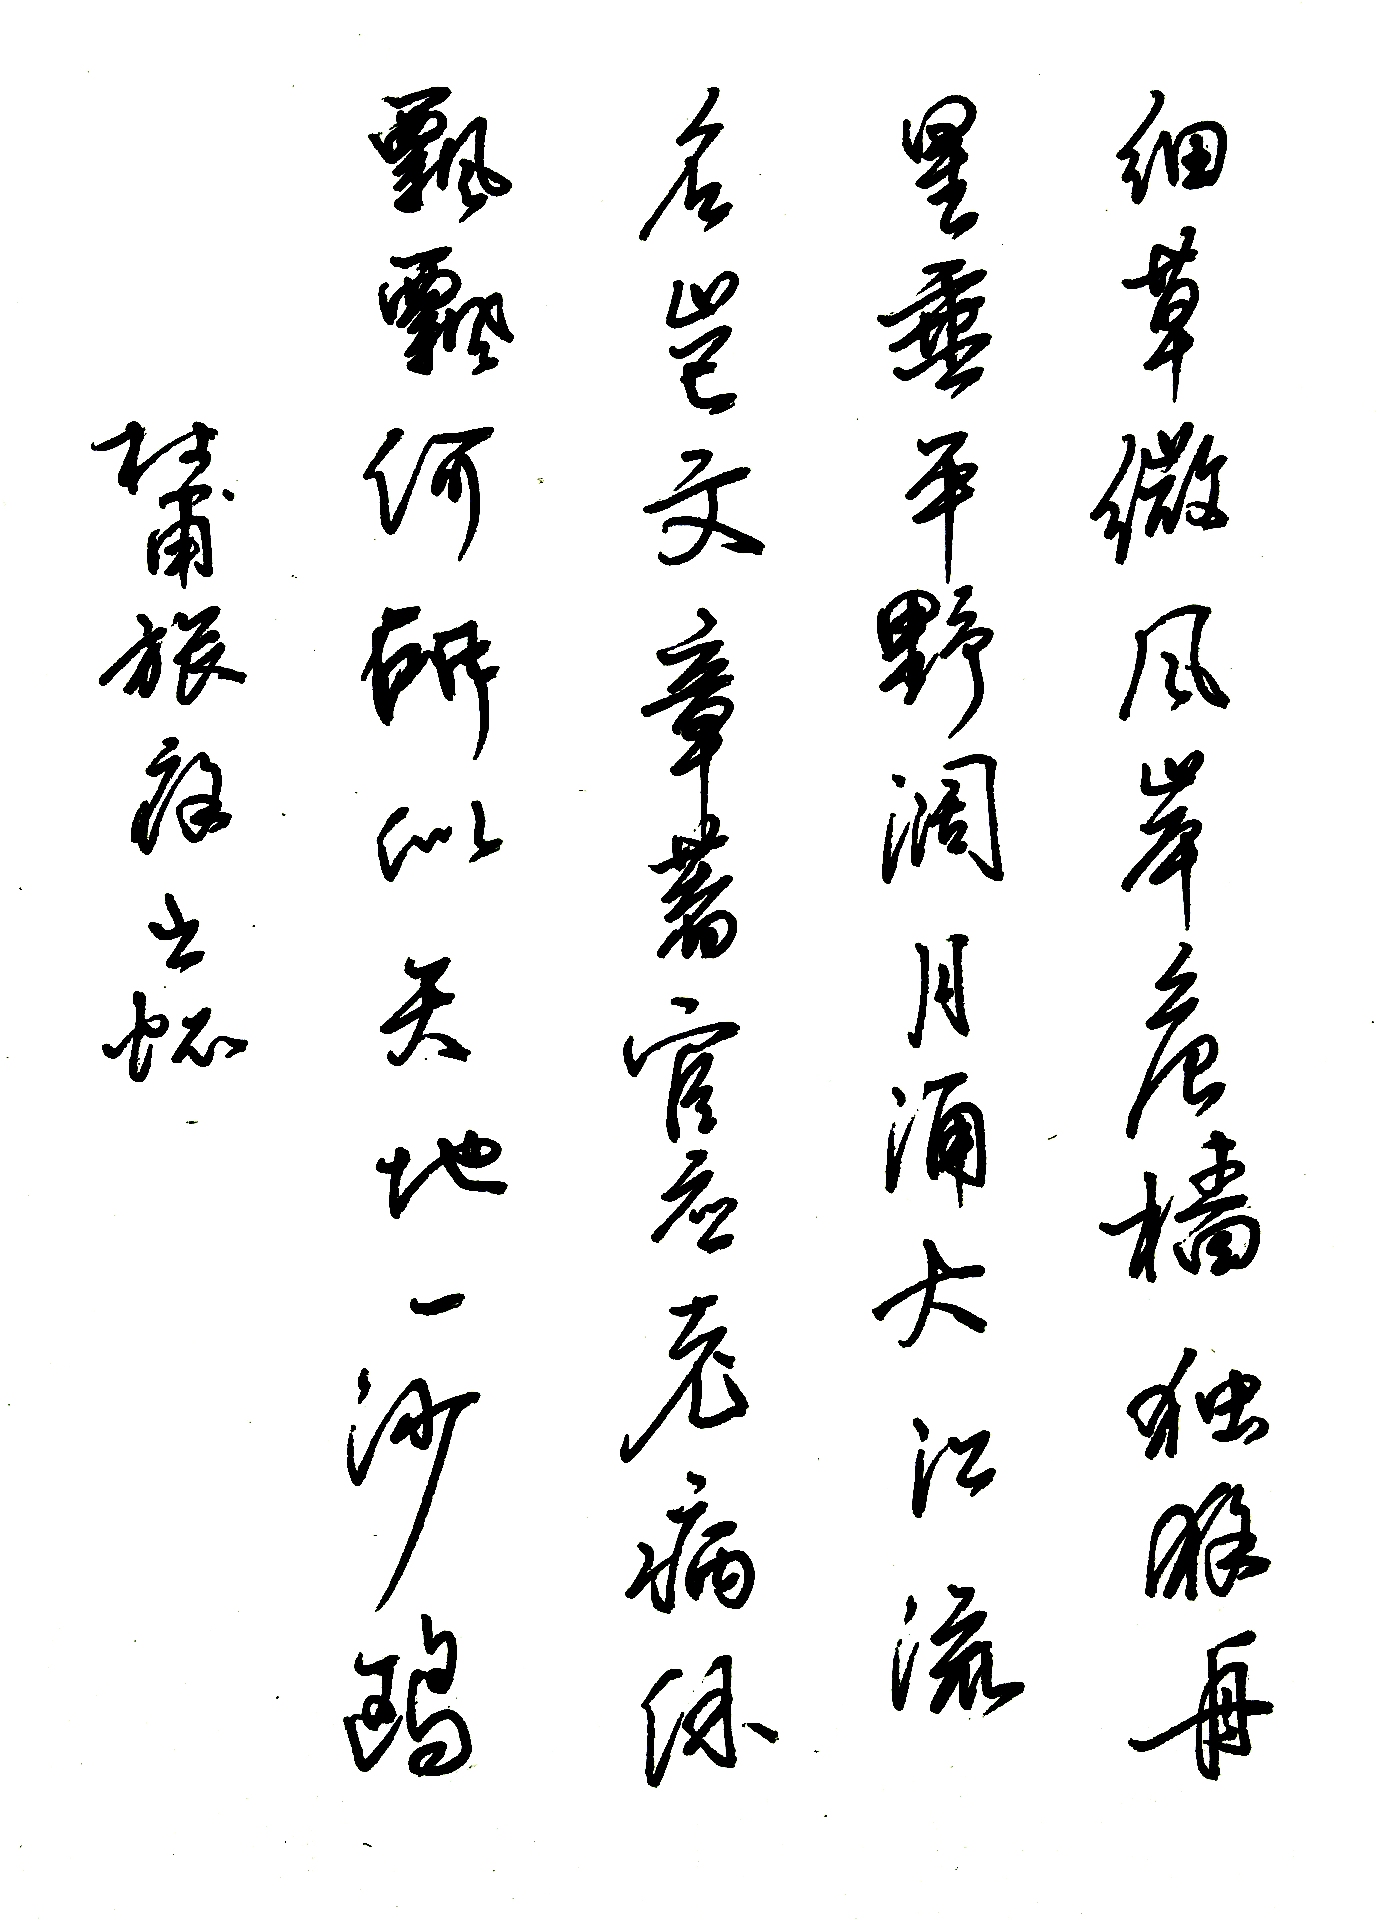 细草微风岸危樯独夜舟
星垂平野阔月涌大江流
名岂文章著官应老病休
飘飘何所似天地一沙鸥
杜甫旅夜书怀